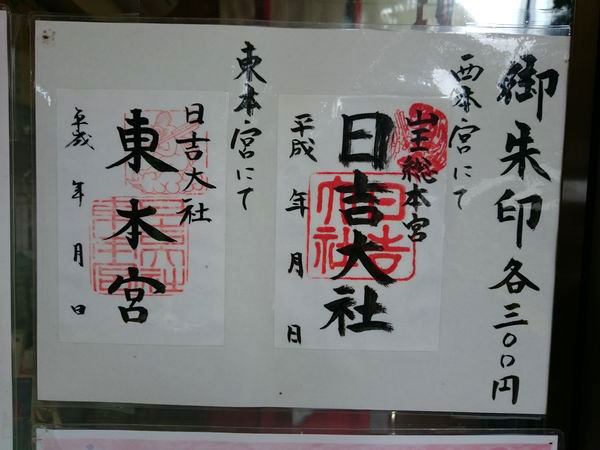 御朱印各三〇〇円
西本宮にて
山王総本宮
日吉大社
平成 年 月 日
東本宮にて
日吉大社
東本宮
平成 年 月 日